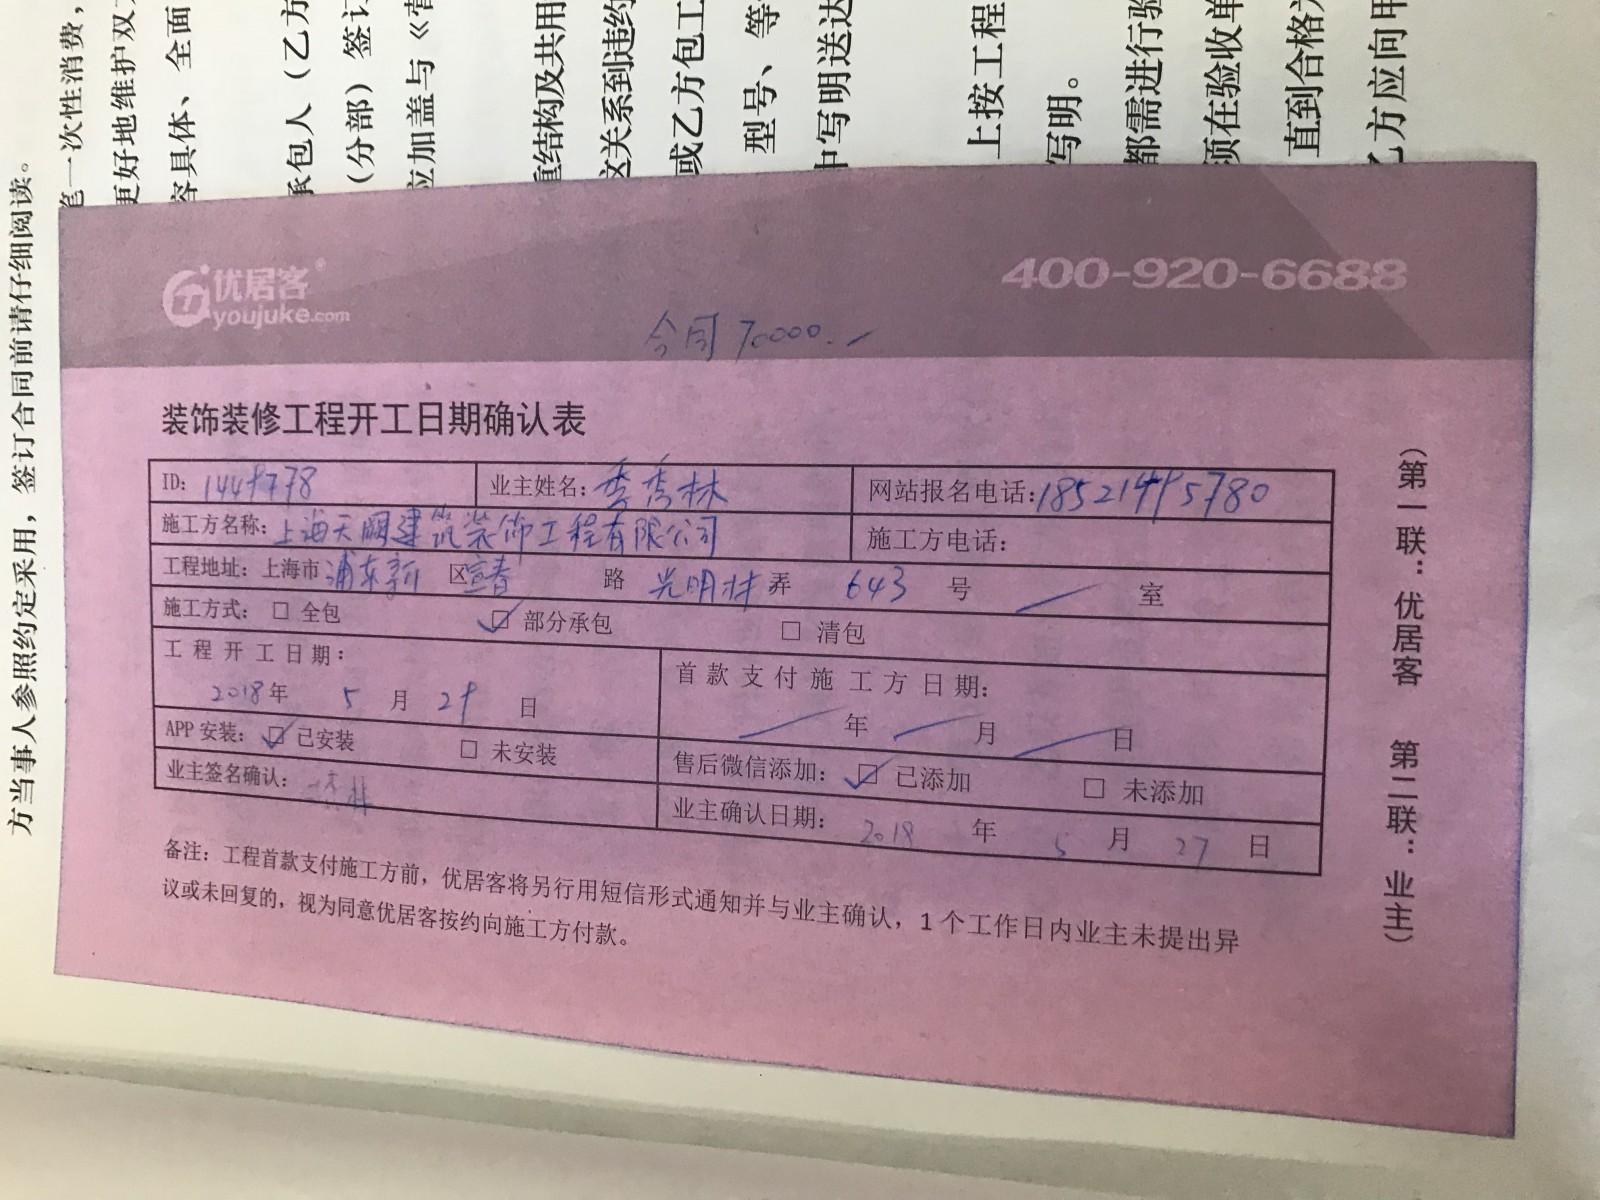 优居客
youjuke.com
400-920-6688
合同 70000.
装饰装修工程开工日期确认表
ID: 1449778 业主姓名: 李秀林 网站报名电话:
施工方名称: 上海天 建筑装饰工程有限公司 施工方电话:
工程地址: 上海市 浦东新 区 宣春 路 光明村 弄 643 号 室
施工方式: □ 全包 ☑ 部分承包 □ 清包
工程开工日期:
2018年 5 月 29 日
首款支付施工方日期:
年 月 日
APP 安装: ☑ 已安装 □ 未安装
售后微信添加: ☑ 已添加 □ 未添加
业主签名确认:
业主确认日期: 2018 年 5 月 27 日
备注: 工程首款支付施工方前, 优居客将另行用短信形式通知并与业主确认, 1 个工作日内业主未提出异
议或未回复的, 视为同意优居客按约向施工方付款。
(第一联: 优居客 第二联: 业主)
方当事人参照约定采用, 签订合同前请仔细阅读。
笔一次性消费,
更好地维护双
容具体、全面
承包人(乙方
(分部)签订
应加盖与《
重结构及共用
这关系到违约
或乙方包工
型号、等
中写明送达
上按工程
写明。
都需进行验
须在验收单
直到合格
乙方应向甲